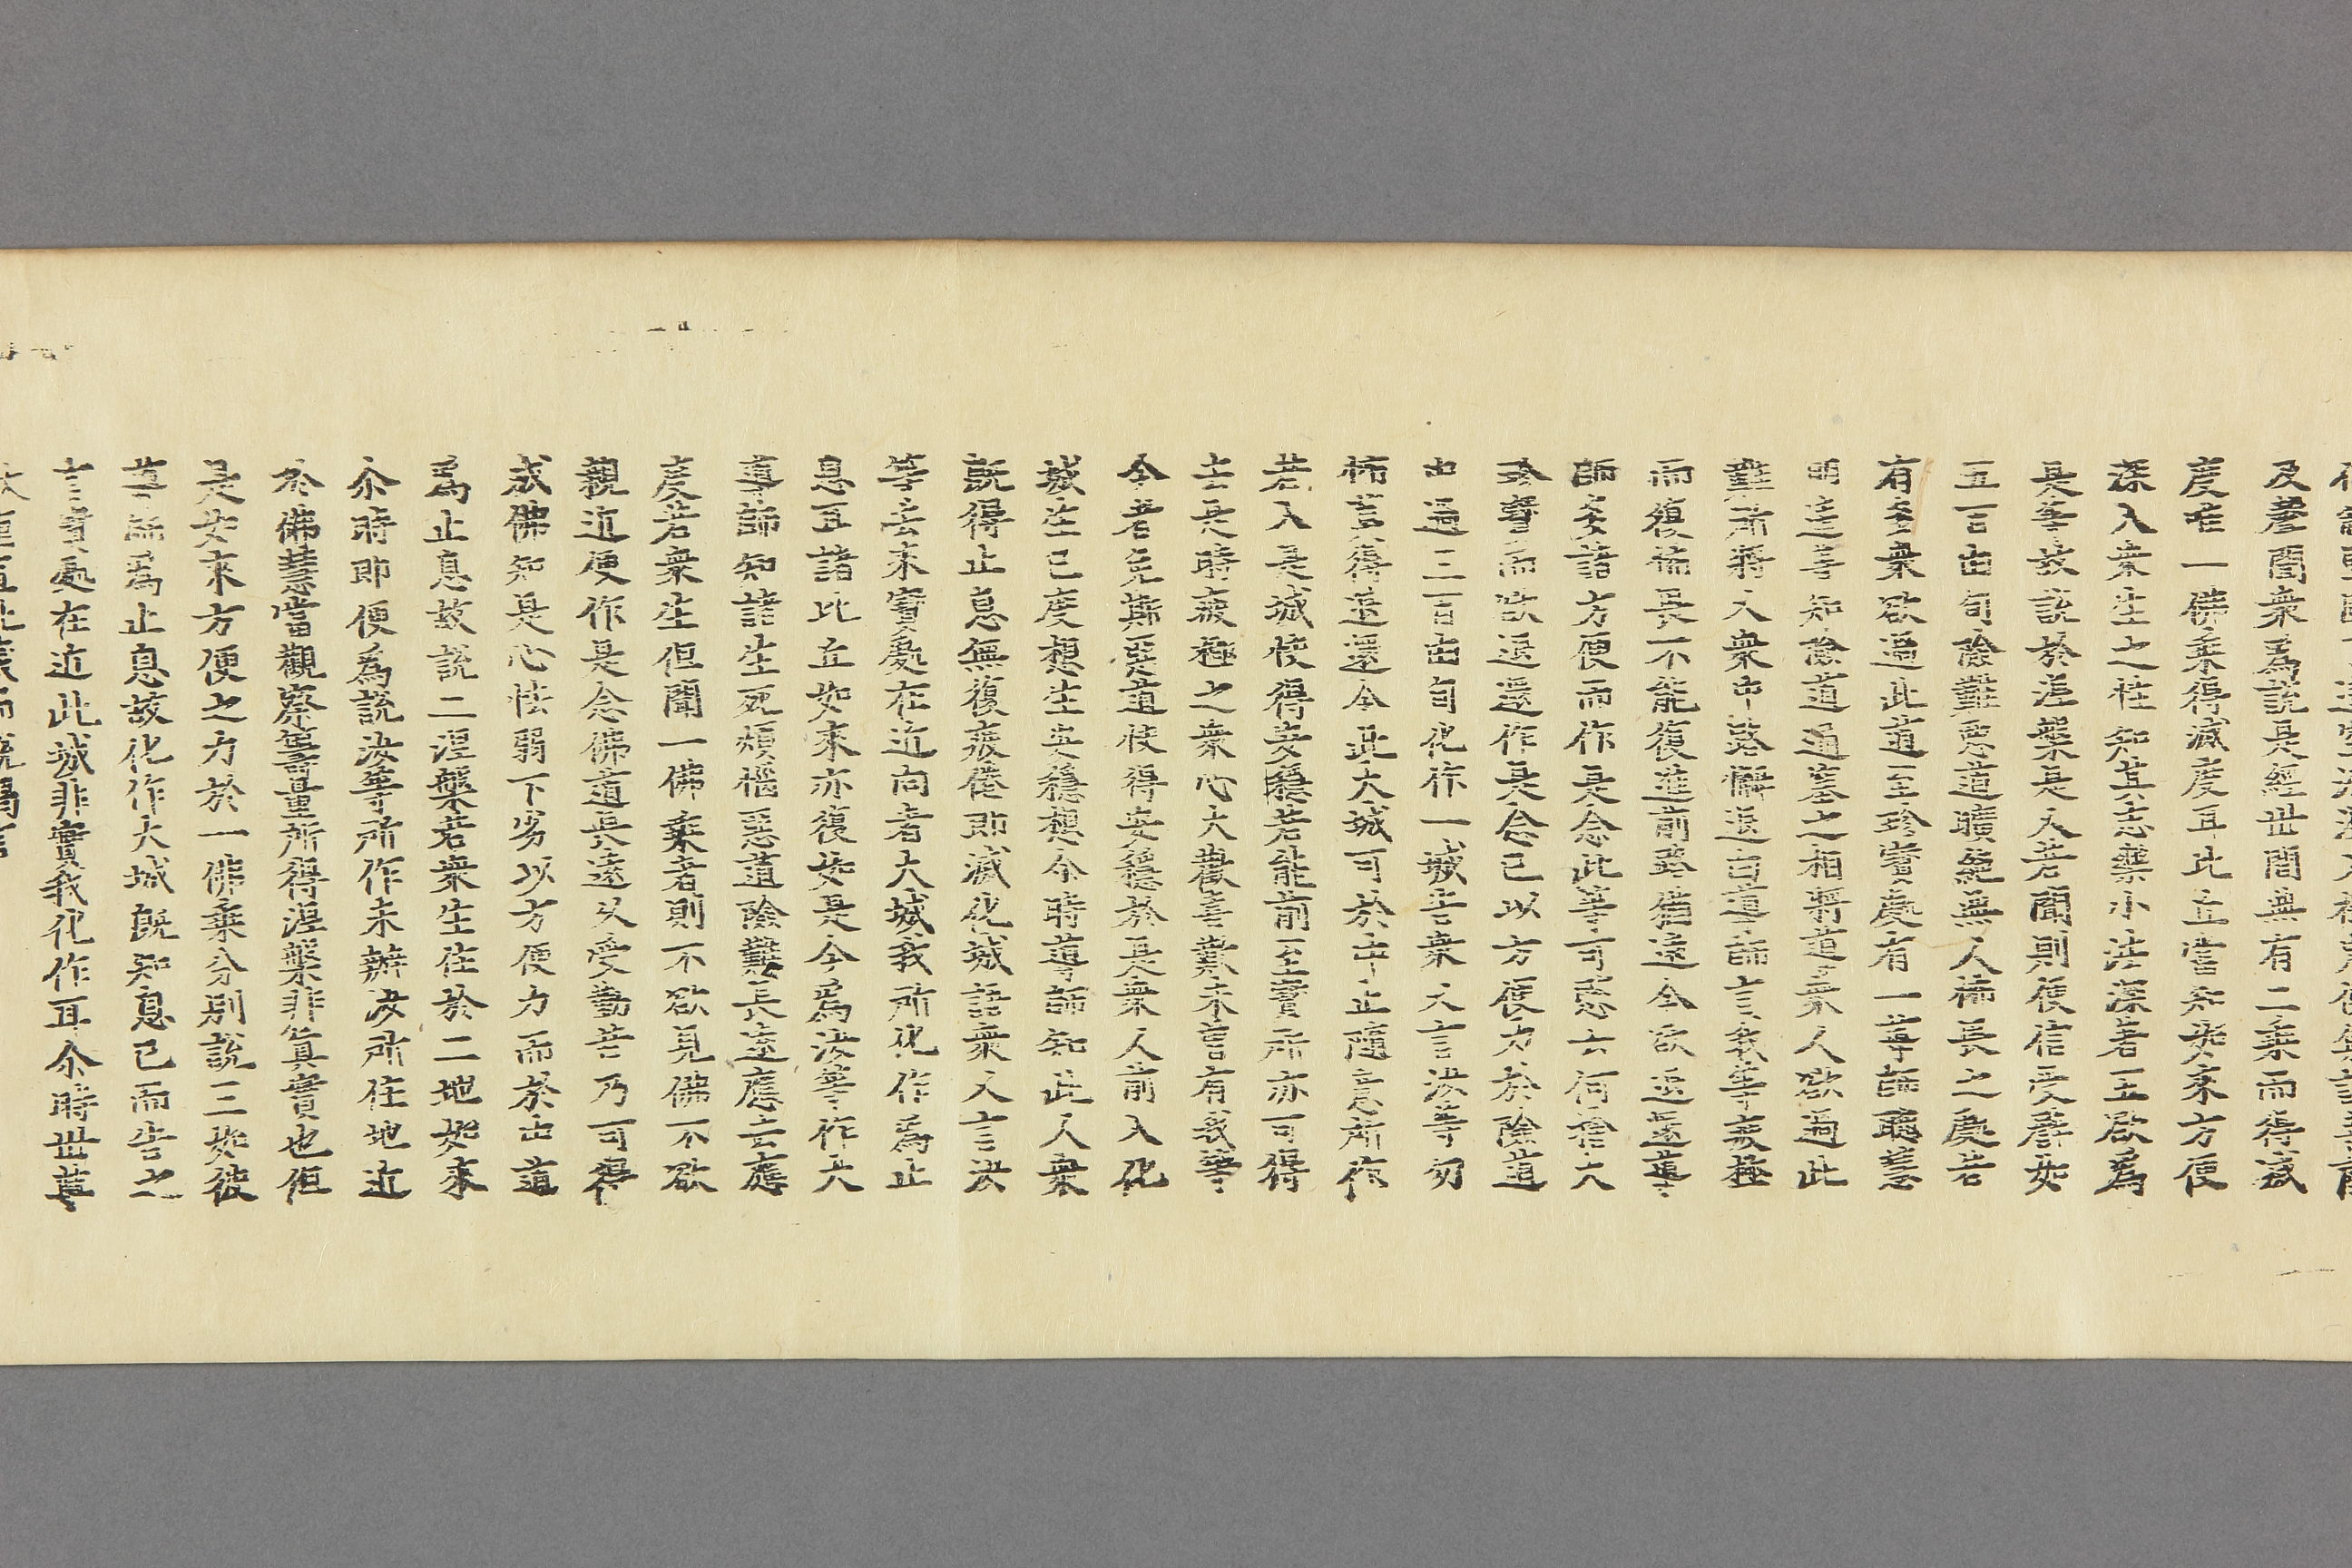 及聲聞衆爲說是經世間無有二乘而得滅
度唯一佛乘得滅度耳比丘當知如來方便
深入衆生之性知其志樂小法深著五欲爲
是等故說於涅槃是人若聞則便信受譬如
五百由旬險難惡道曠絶無人怖畏之處若
有多衆欲過此道至珍寶處有一導師聰慧
明達善知險道通塞之相將導衆人欲過此
難所將人衆中路懈退白導師言我等疲極
而復怖畏不能復進前路猶遠今欲退還導
師多諸方便而作是念此等可愍云何捨大
珍寶而欲退還作是念已以方便力於險道
中過三百由旬化作一城告衆人言汝等勿
怖莫得退還今此大城可於中止隨意所作
若入是城快得安穩若能前至寶所亦可得
去是時疲極之衆心大歡喜歎未曾有我等
今者免斯惡道快得安穩於是衆人前入化
城生已度想生安穩想尒時導師知此人衆
既得止息無復疲惓即滅化城語衆人言汝
等去來寶處在近向者大城我所化作爲止
息耳諸比丘如來亦復如是今爲汝等作大
導師知諸生死煩惱惡道險難長遠應去應
度若衆生但聞一佛乘者則不欲見佛不欲
親近便作是念佛道長遠久受勤苦乃可得
成佛知是心怯弱下劣以方便力而於中道
爲止息故說二涅槃若衆生住於二地如來
尒時即便爲說汝等所作未辦汝所住地近
於佛慧當觀察籌量所得涅槃非真實也但
是如來方便之力於一佛乘分別說三如彼
導師爲止息故化作大城既知息已而告之
言寶處在近此城非實我化作耳尒時世尊